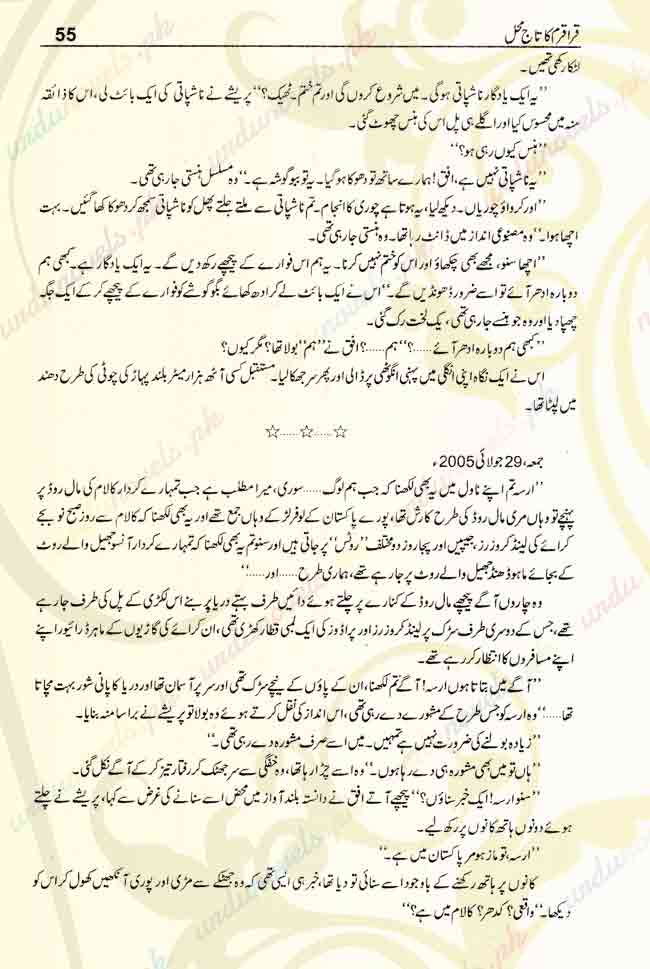 55 قراقرم کا تاج محل
لٹکا رکھی تھیں۔
”یہ ایک یادگار ناشپاتی ہوگی۔ میں شروع کروں گی اور تم ختم۔ ٹھیک؟“ پریشے نے ناشپاتی کی ایک بائٹ لی، اس کا ذائقہ
منہ میں محسوس کیا اور اگلے ہی پل اس کی ہنسی چھوٹ گئی۔
”ہنس کیوں رہی ہو؟“
”یہ ناشپاتی نہیں ہے، افق! ہمارے ساتھ تو دھوکا ہو گیا۔ یہ تو ببوگوشہ ہے۔“ وہ مسلسل ہنستی جا رہی تھی۔
”اور کرواؤ چوریاں۔ دیکھ لیا، یہ ہوتا ہے چوری کا انجام۔ تم ناشپاتی سے ملتے جلتے پھل کو ناشپاتی سمجھ کر دھوکا کھا گئیں۔ بہت
اچھا ہوا۔“ وہ مصنوعی انداز میں ڈانٹ رہا تھا۔ وہ ہنستی جا رہی تھی۔
”اچھا سنو، مجھے بھی چکھاؤ اور اس کو ختم نہیں کرنا۔ یہ ہم اس فوارے کے پیچھے رکھ دیں گے۔ یہ ایک یادگار ہے۔ کبھی ہم
دوبارہ ادھر آئے تو اسے ضرور ڈھونڈیں گے۔“ اس نے ایک بائٹ لے کر ادھ کھائے بگوگوشے کو فوارے کے پیچھے کر کے ایک جگہ
چھپا دیا اور وہ جو ہنسے جا رہی تھی، یک لخت رک گئی۔
”کبھی ہم دوبارہ ادھر آئے……؟“ ہم……؟ افق نے ”ہم“ بولا تھا؟ مگر کیوں؟
اس نے ایک نگاہ اپنی انگلی میں پہنی انگوٹھی پر ڈالی اور پھر سر جھکا لیا۔ مستقبل کسی آٹھ ہزار میٹر بلند پہاڑ کی چوٹی کی طرح دھند
میں لپٹا تھا۔
☆……☆……☆
جمعہ، 29 جولائی 2005ء
”ارسہ تم اپنے ناول میں یہ بھی لکھنا کہ جب ہم لوگ……سوری، میرا مطلب ہے جب تمہارے کردار کالام کی مال روڈ پر
پہنچے تو وہاں مری مال روڈ کی طرح کا رش تھا، پورے پاکستان کے لوفر لڑکے وہاں جمع تھے اور یہ بھی لکھنا کہ کالام سے روز صبح نو بجے
کرائے کی لینڈ کروزرز، جیپیں اور پجارو زدو مختلف ”روٹس“ پر جاتی ہیں اور سنو تم یہ بھی لکھنا کہ تمہارے کردار آنسو جھیل والے روٹ
کے بجائے ماہوڈھنڈ جھیل والے روٹ پر جا رہے تھے، ہماری طرح……اور……“
وہ چاروں آگے پیچھے مال روڈ کے کنارے پر چلتے ہوئے دائیں طرف بہتے دریا پر بنے اس لکڑی کے پل کی طرف جا رہے
تھے، جس کے دوسری طرف سڑک پر لینڈ کروزرز اور پراڈوز کی ایک لمبی قطار کھڑی تھی، ان کرائے کی گاڑیوں کے ماہر ڈرائیور اپنے
اپنے مسافروں کا انتظار کر رہے تھے۔
”آگے میں بتاتا ہوں ارسہ! آگے تم لکھنا، ان کے پاؤں کے نیچے سڑک تھی اور سر پر آسمان تھا اور دریا کا پانی شور بہت مچاتا
تھا……“ وہ ارسہ کو جس طرح کے مشورے دے رہی تھی، اس انداز کی نقل کرتے ہوئے وہ بولا تو پریشے نے برا سا منہ بنایا۔
”زیادہ بولنے کی ضرورت نہیں ہے تمہیں۔ میں اسے صرف مشورہ دے رہی تھی۔“
”ہاں تو میں بھی مشورہ ہی دے رہا ہوں۔“ وہ اسے چڑا رہا تھا، وہ خفگی سے سر جھٹک کر رفتار تیز کر کے آگے نکل گئی۔
”سنو ارسہ! ایک خبر سناؤں؟“ پیچھے آتے افق نے دانستہ بلند آواز میں محض اسے سنانے کی غرض سے کہا، پریشے نے چلتے
ہوئے دونوں ہاتھ کانوں پر رکھ لیے۔
”ارسہ، تو ماز ہومر پاکستان میں ہے۔“
کانوں پر ہاتھ رکھنے کے باوجود اسے سنائی تو دیا تھا، خبر ہی ایسی تھی کہ وہ جھٹکے سے مڑی اور پوری آنکھیں کھول کر اس کو
دیکھا۔ ”واقعی؟ کدھر؟ کالام میں ہے؟“